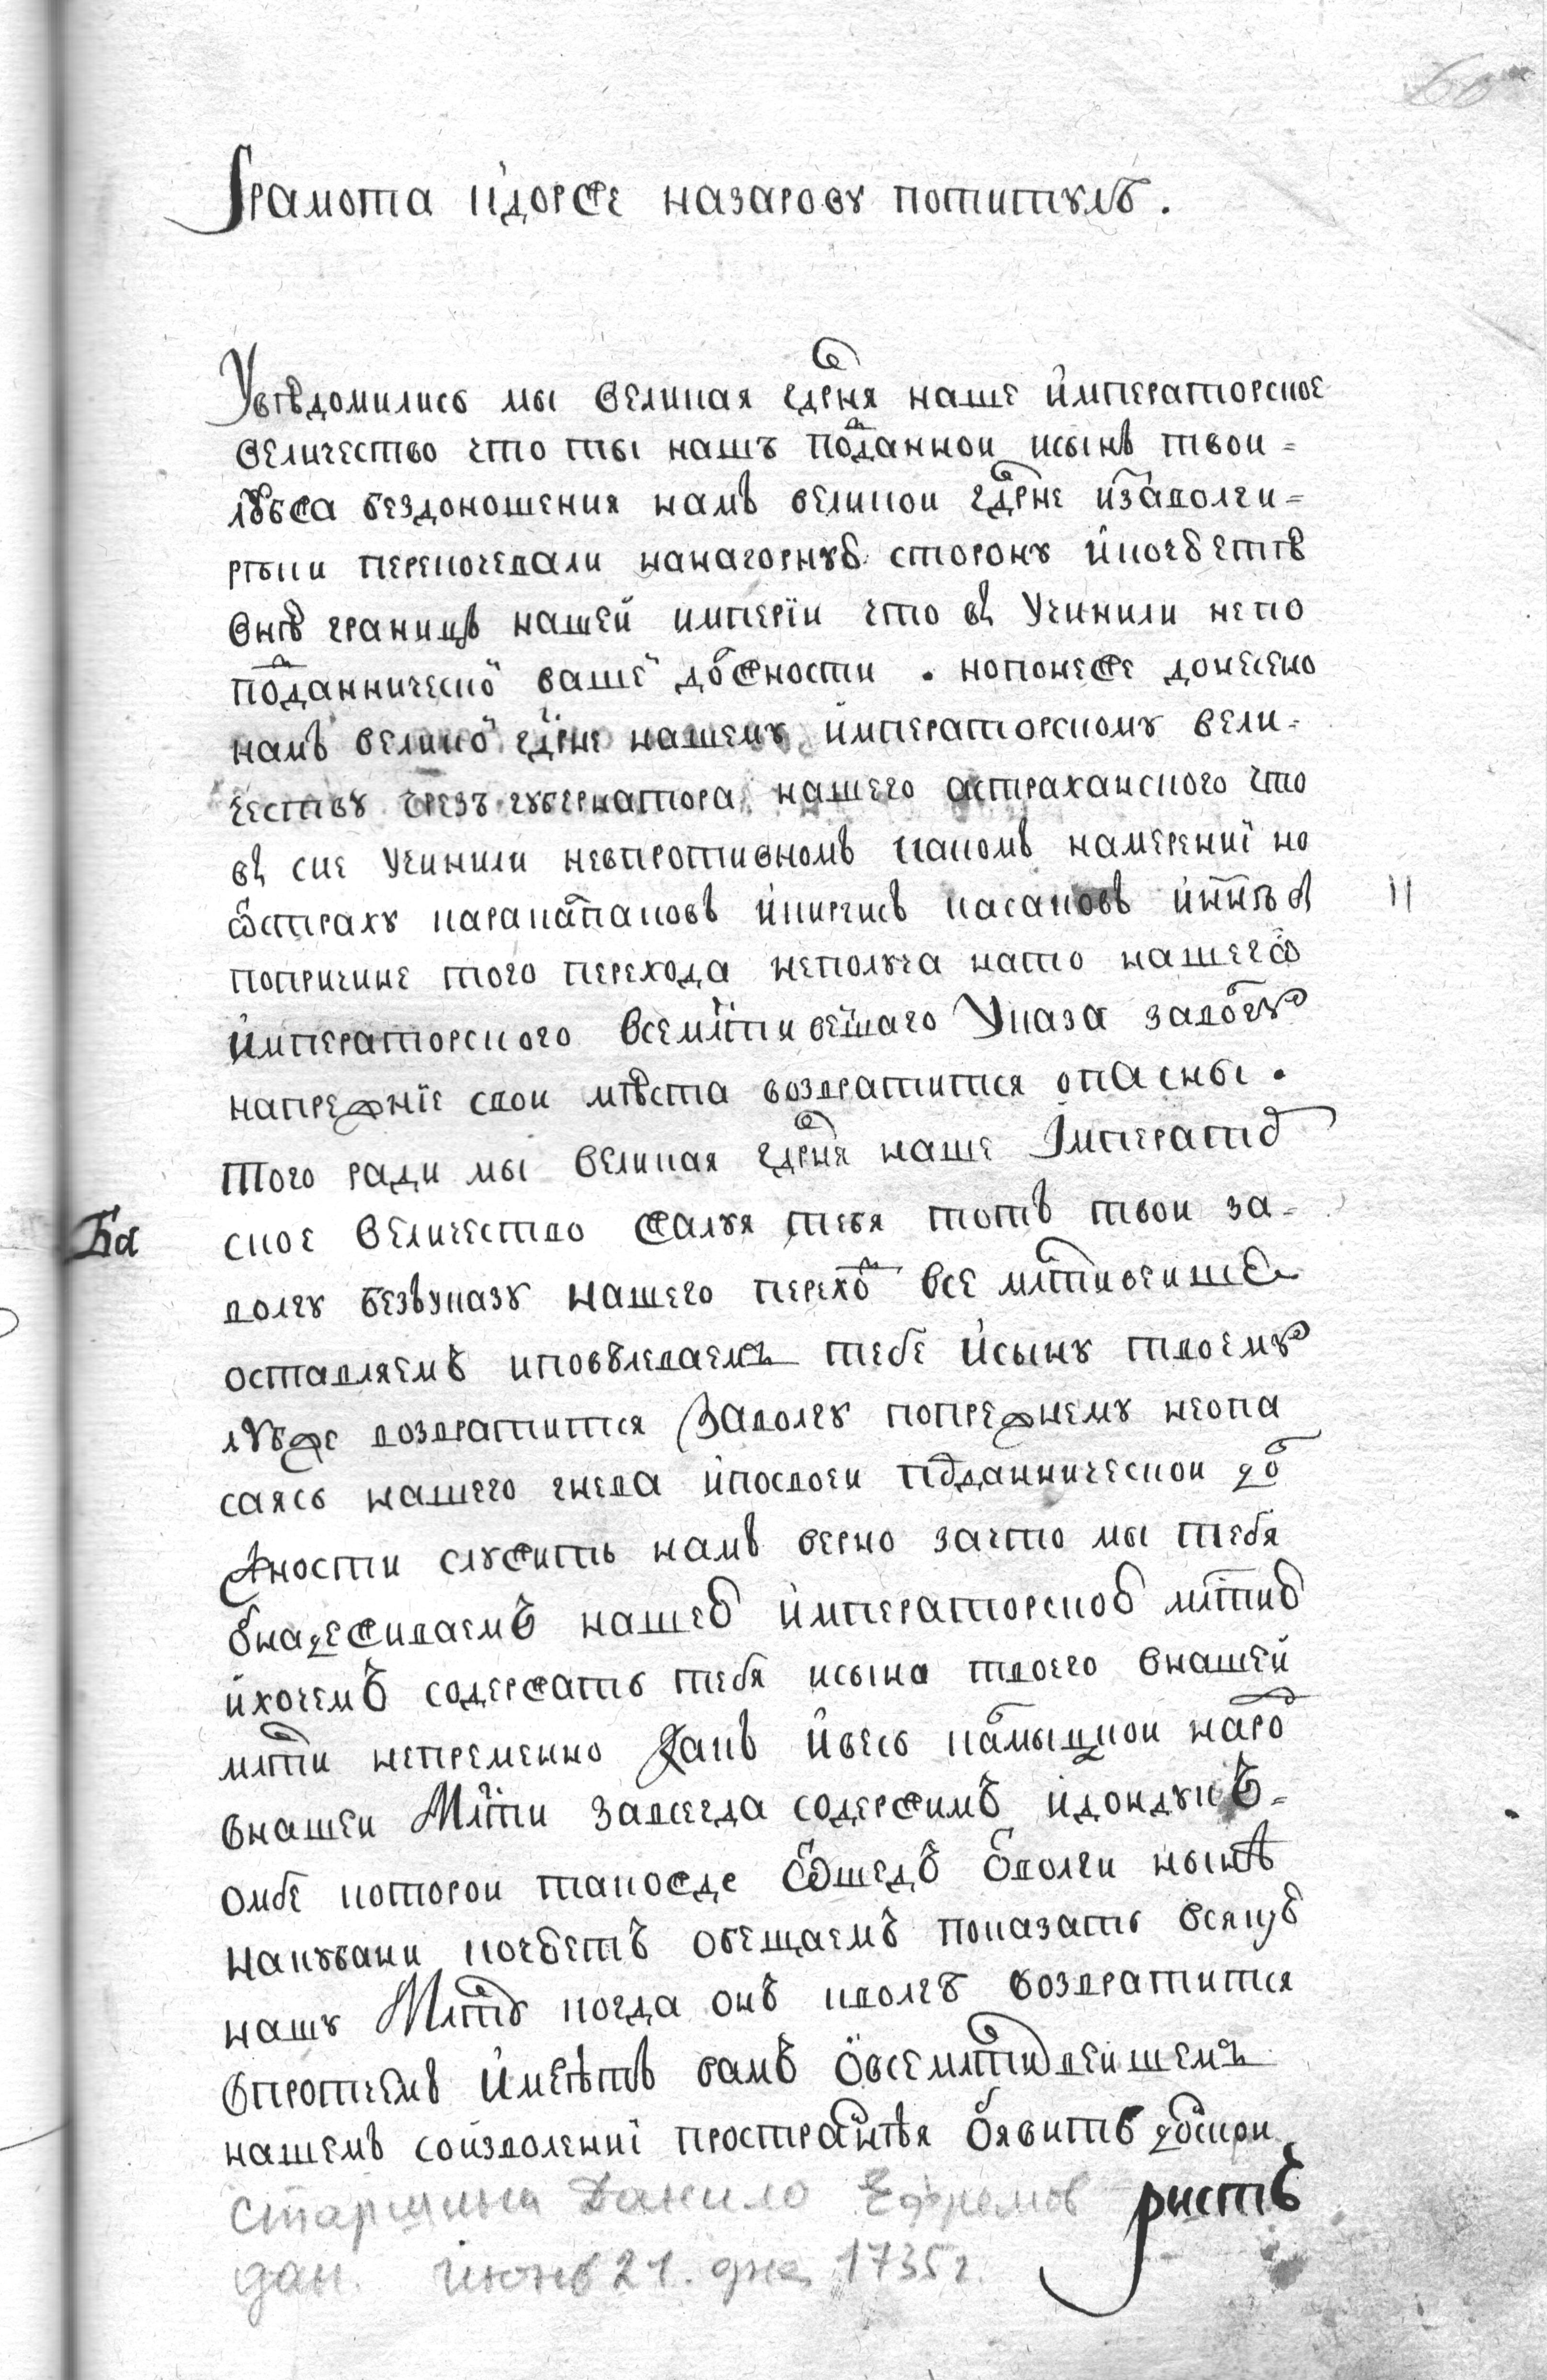 60
Грамота кдорже назарову потитулѣ .
Увѣдомились мы великая гдрня наше императорское
величество что ты нашъ подданнои исынъ твои =
лубжа бездоношения намъ великои гдрне изаволги =
рѣки перекочевали нанагорную сторону икочуете
внѣ границъ нашей имперїи что вы учинили непо
подданическо вашей должности . нопонеже донесено
намъ великой гдрне нашему императорскому вели =
честву чрезъ губернатора нашего астраханского что
вы сие учинили невпротивномъ какомъ намерениї но
ѿстраху каракалпаковъ икиргисъ касаковъ инынѣ вы
попричине того перехода неполуча нато нашегѡ
императорского всемлтивейшаго Указа заволгу
напрежнїе свои мѣста возвратится опасны .
того ради мы великая гдрня наше Император
ское величество жалуя тебя тотъ твои за =
волгу безвуказу нашего переход всемлтивеише
оставляемъ иповелеваемъ тебе исыну твоему
лубже возвратится Заволгу попрежнему неопа
саясь нашего гнева ипосвоеи подданническои дол
жности служить намъ верно зачто мы тебя
обнадеживаемъ нашею императорскою млтию
ихочемъ содержать тебя исына твоего внашей
млти непременно какъ ивесь калмыцкои народ
внашеи Млти завсегда содержимъ идондукъ =
омбе которои такожде ѿшедъ ѿволги нынѣ
накубани кочуетъ обещаемъ показать всякую
нашу Млть когда онъ кволге возвратится
впротчемъ имеетъ вамъ овсемлтивеишемъ
нашемъ соизволениї пространнѣя обявить донской
ристъ
старшина Данило Ефремов
дан. июнь 21. дня 1735 г.